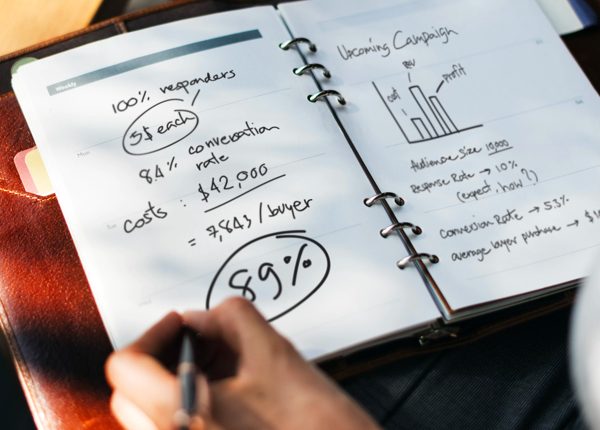 Weekly
100% responders
5$ each
8.4% conversation
rate
costs : $42,000
= 7,843/buyer
89%
Upcoming Campaign
cost
rev
profit
Audience size 10,000
Response Rate → 10%
(expect. how?)
Conversion Rate → 5.3%
average buyer purchase → $1